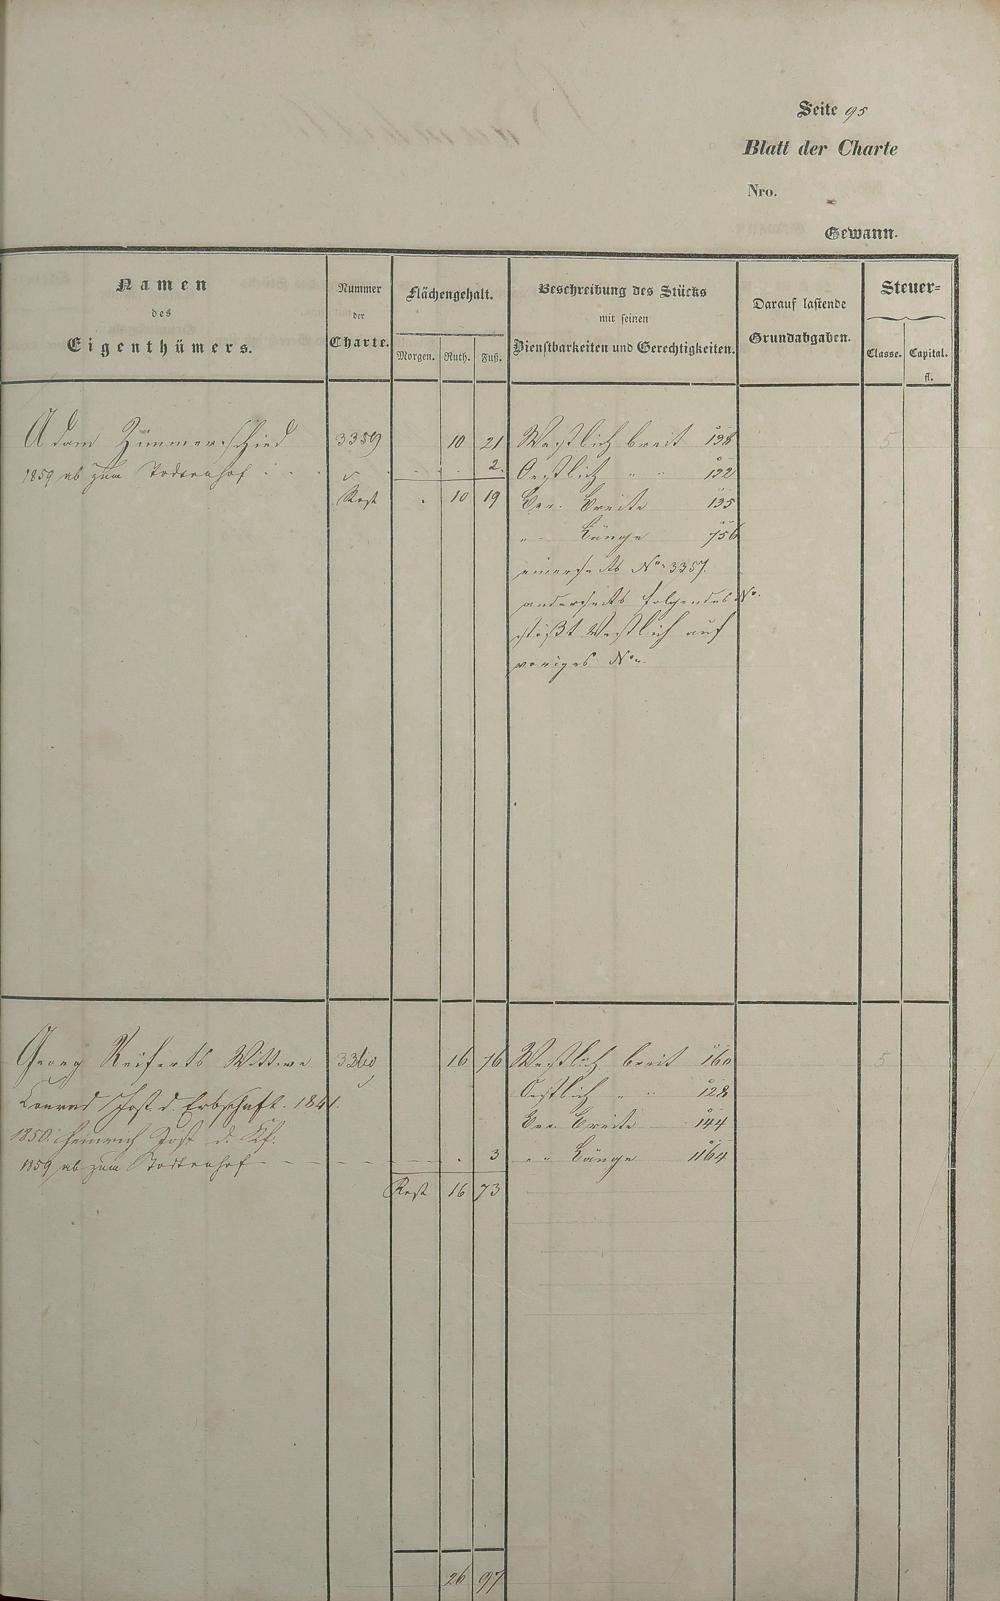 Seite 95
Blatt der Charte
Nro.
Gewann.
Namen
des
Eigenthümers.
Nummer
der
Charte.
Flächengehalt.
Morgen. Ruth. Fuß.
Beschreibung des Stücks
mit seinen
Dienstbarkeiten und Gerechtigkeiten.
Darauf lastende
Grundabgaben.
Steuer=
Classe. Capital.
fl.
Adam Zimmerschied 3359 10 21 Westlich breit 138 5
1859 ab zum Todtenhof 2. Oestlich " " 132
Rest . 10 19 Ver. Breite 135
" Länge 756
einerseits No. 3357.
anderseits folgendes No.
stößt Westlich auf
voriges No.
Georg Reiferts Wittwe 3360 16 76 Westlich breit 160 5
Conrad Jost d. Erbschaft. 1841. Oestlich " " 128
1850. Heinrich Jost d. Kf. Ver. Breite 144
1859 ab zum Todtenhof . 3 " " Länge 1164
Rest 16 73
26 97